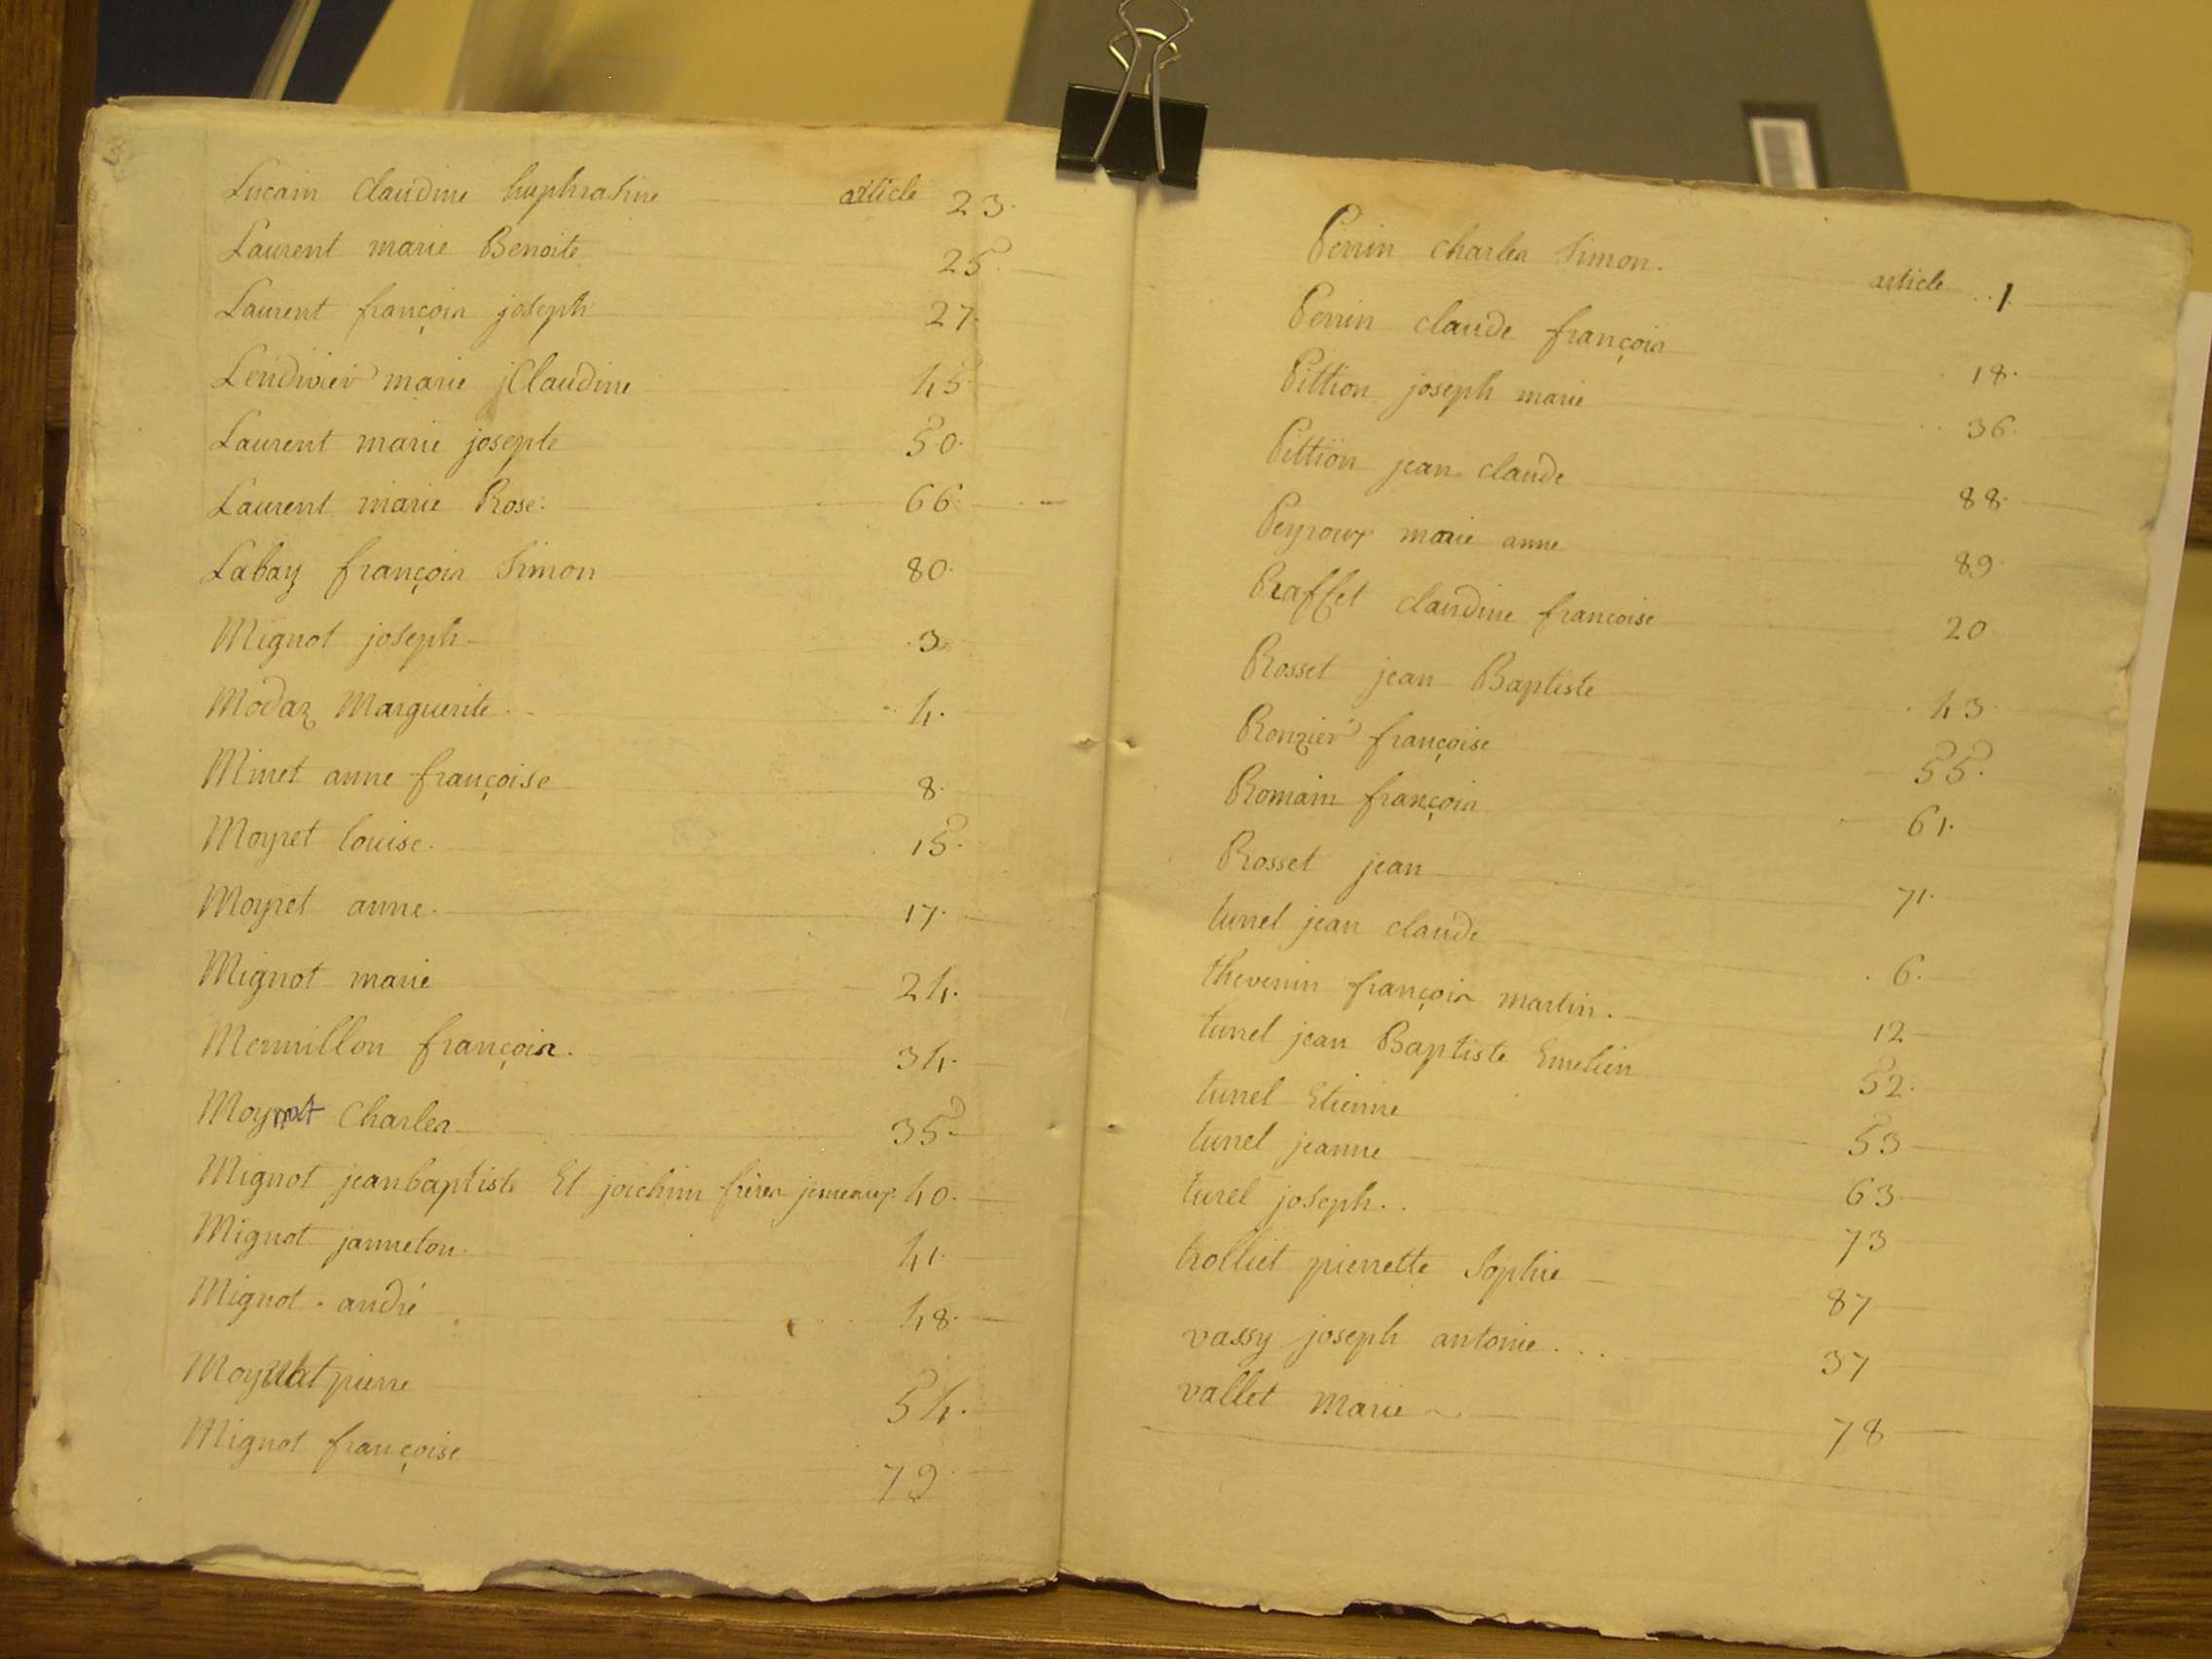 Lucain Claudine huphrasine article 23.
Laurent marie Benoite 25.
Laurent françois joseph 27.
marie Claudine 45
Laurent marie josepte 50.
Laurent marie Rose: 66.
Labay françois Simon 80.
Mignot joseph 3
Modaz Marguerite 4.
Minet anne françoise 8.
Moyret louise. 15.
Moyret anne. 17.
Mignot marie 24.
Mermillon françois. 34.
Charles 35
Mignot jeanbaptiste Et joichim freres jumeaux 40.
Mignot janneton 41.
Mignot andré 48.
pierre 54.
Mignot françoise 79
Perrin charles Simon. article 1
Perrin claude françois 18.
Pittion joseph marie 36.
Pittion jean claude 88.
Peyroux marie anne 89
Raffet claudine francoise 20
Rosset jean Baptiste 43
Ronzier françoise 55.
Romain françois 61.
Rosset jean 71.
turrel jean claude 6.
thevenin françois martin. 12
turrel jean Baptiste Emelien 52.
turrel Etienne 53
turrel jeanne 63
turel joseph.. 73
trolliet pierrette Sophie 87
vassy joseph antonie... 37
vallet Marie 78